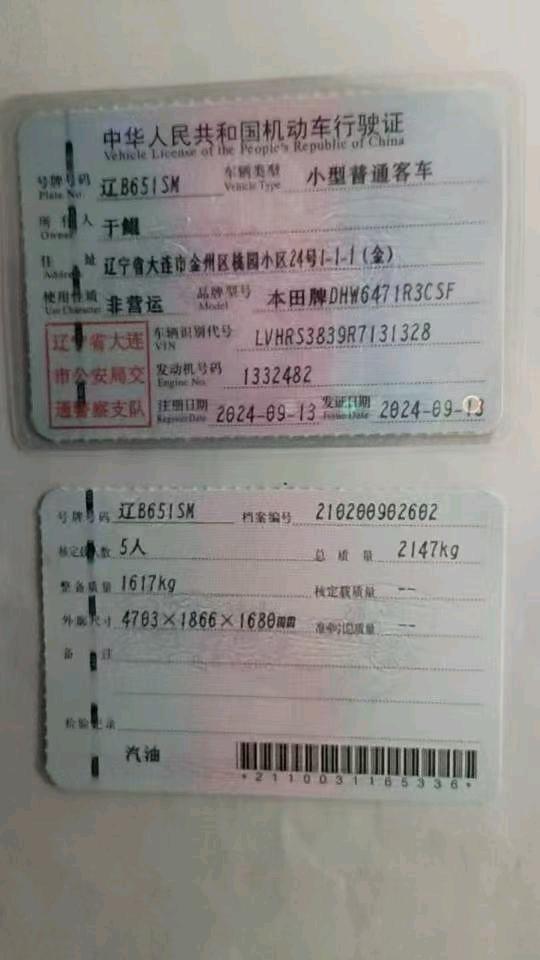 中华人民共和国机动车行驶证
Vehicle License of the People's Republic of China
号牌号码 辽B651SM 车辆类型 小型普通客车
Plate No. Vehicle Type
所有人 于
Owner
住址 辽宁省大连市金州区桃园小区24号1-1-1(金)
Address
使用性质 非营运 品牌型号 本田牌DHW6471R3CSF
Use Character Model
辽宁省大连 车辆识别代号 LVHRS3839R7131328
VIN
市公安局交 发动机号码 1332482
Engine No.
通警察支队 注册日期 2024-09-13 发证日期 2024-09-13
Register Date Issue Date
号牌号码 辽B651SM 档案编号 210200902602
核定载人数 5人 总质量 2147kg
整备质量 1617kg 核定载质量 --
外廓尺寸 4703×1866×1680mm 准牵引总质量 --
备注
检验记录
汽油
*2110031165336*